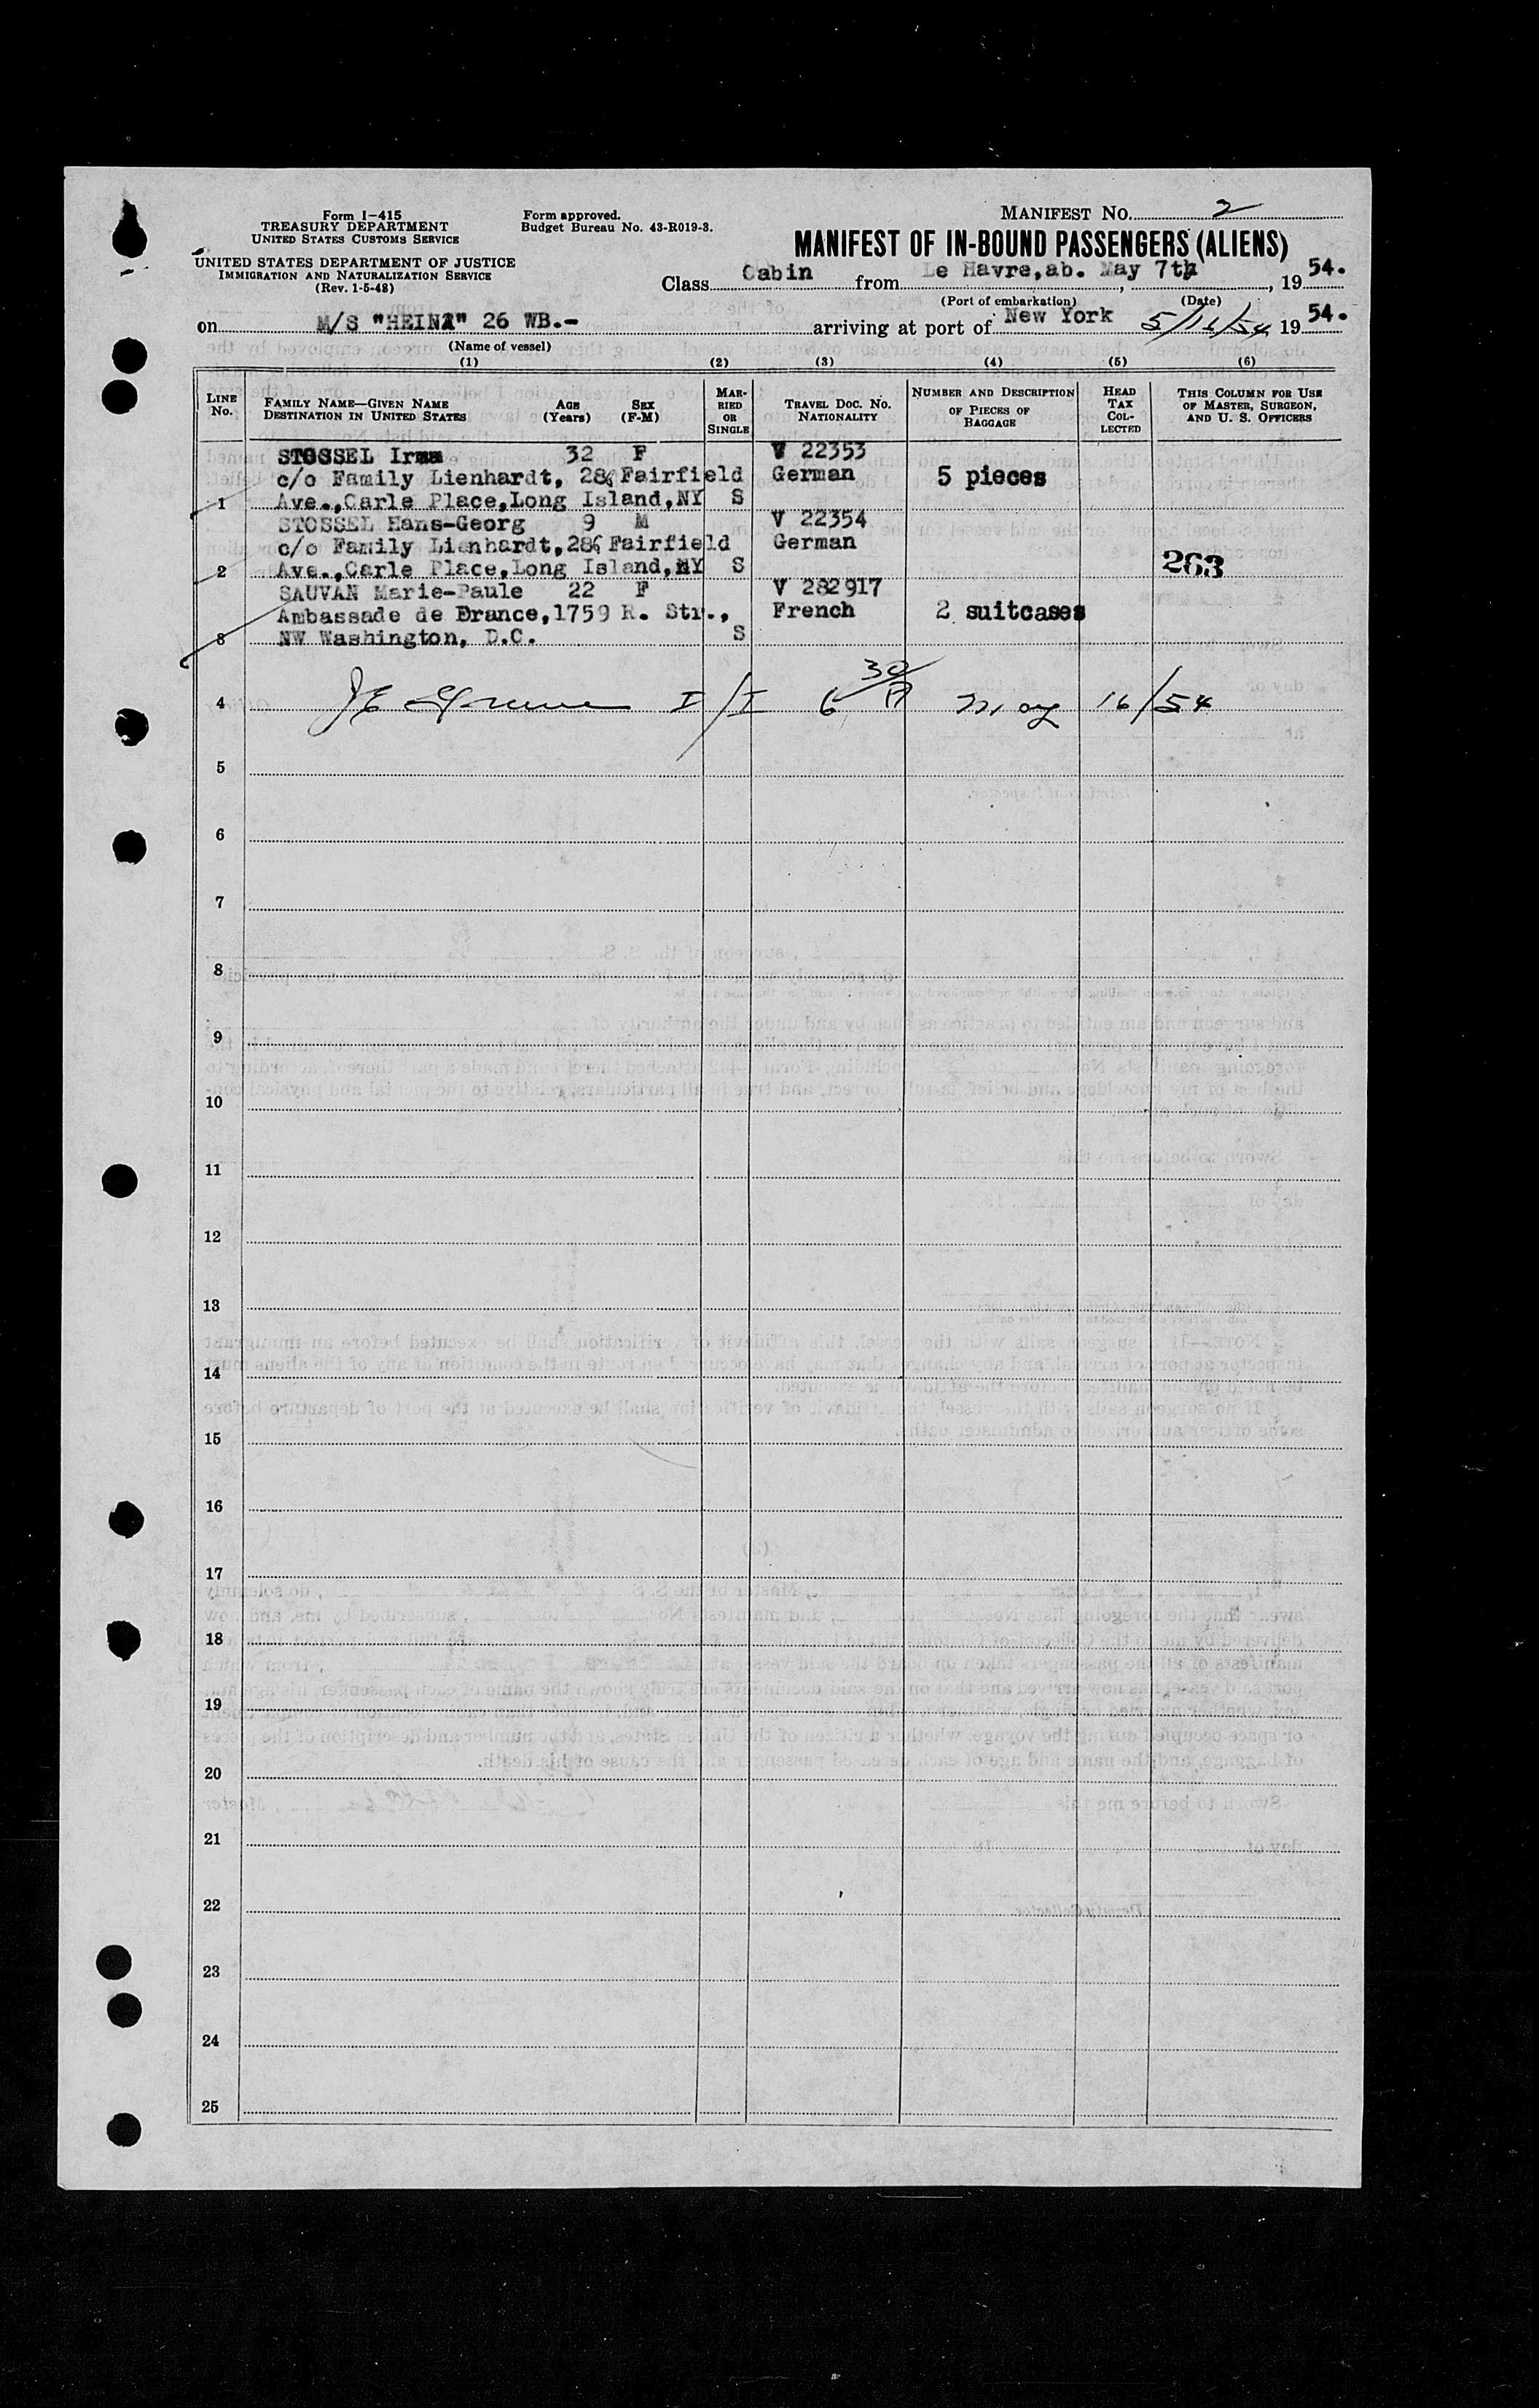 Form I-415
TREASURY DEPARTMENT
UNITED STATES CUSTOMS SERVICE
UNITED STATES DEPARTMENT OF JUSTICE
IMMIGRATION AND NATURALIZATION SERVICE
(Rev. 1-5-48)
Form approved.
Budget Bureau No. 43-R019-3.
MANIFEST NO. 2
MANIFEST OF IN-BOUND PASSENGERS (ALIENS)
Class Cabin from Le Havre,ab. May 7th, 19 54.
(Port of embarkation) (Date)
on M/S 26 WB.- arriving at port of New York 5/16/54 19 54.
(Name of vessel)
(1) (2) (3) (4) (5) (6)
LINE No.
FAMILY NAME—GIVEN NAME
DESTINATION IN UNITED STATES
AGE (Years)
SEX (F-M)
MARRIED OR SINGLE
TRAVEL DOC. NO. NATIONALITY
NUMBER AND DESCRIPTION OF PIECES OF BAGGAGE
HEAD TAX COLLECTED
THIS COLUMN FOR USE OF MASTER, SURGEON, AND U. S. OFFICERS
STOSSEL Irma 32 F V 22353
c/o Family Lienhardt, Fairfield German 5 pieces
1 Ave.,Carle Place,Long Island,NY S
STOSSEL Hans-Georg 9 M V 22354
c/o Family Lienhardt, Fairfield German
2 Ave.,Carle Place,Long Island,NY S 263
SAUVAN Marie-Paule 22 F V 282917
Ambassade de Drance,1759 R. Str., French 2 suitcases
3 NW Washington, D.C. S
4 I/I 6 30 May 16/54
5
6
7
8
9
10
11
12
13
14
15
16
17
18
19
20
21
22
23
24
25